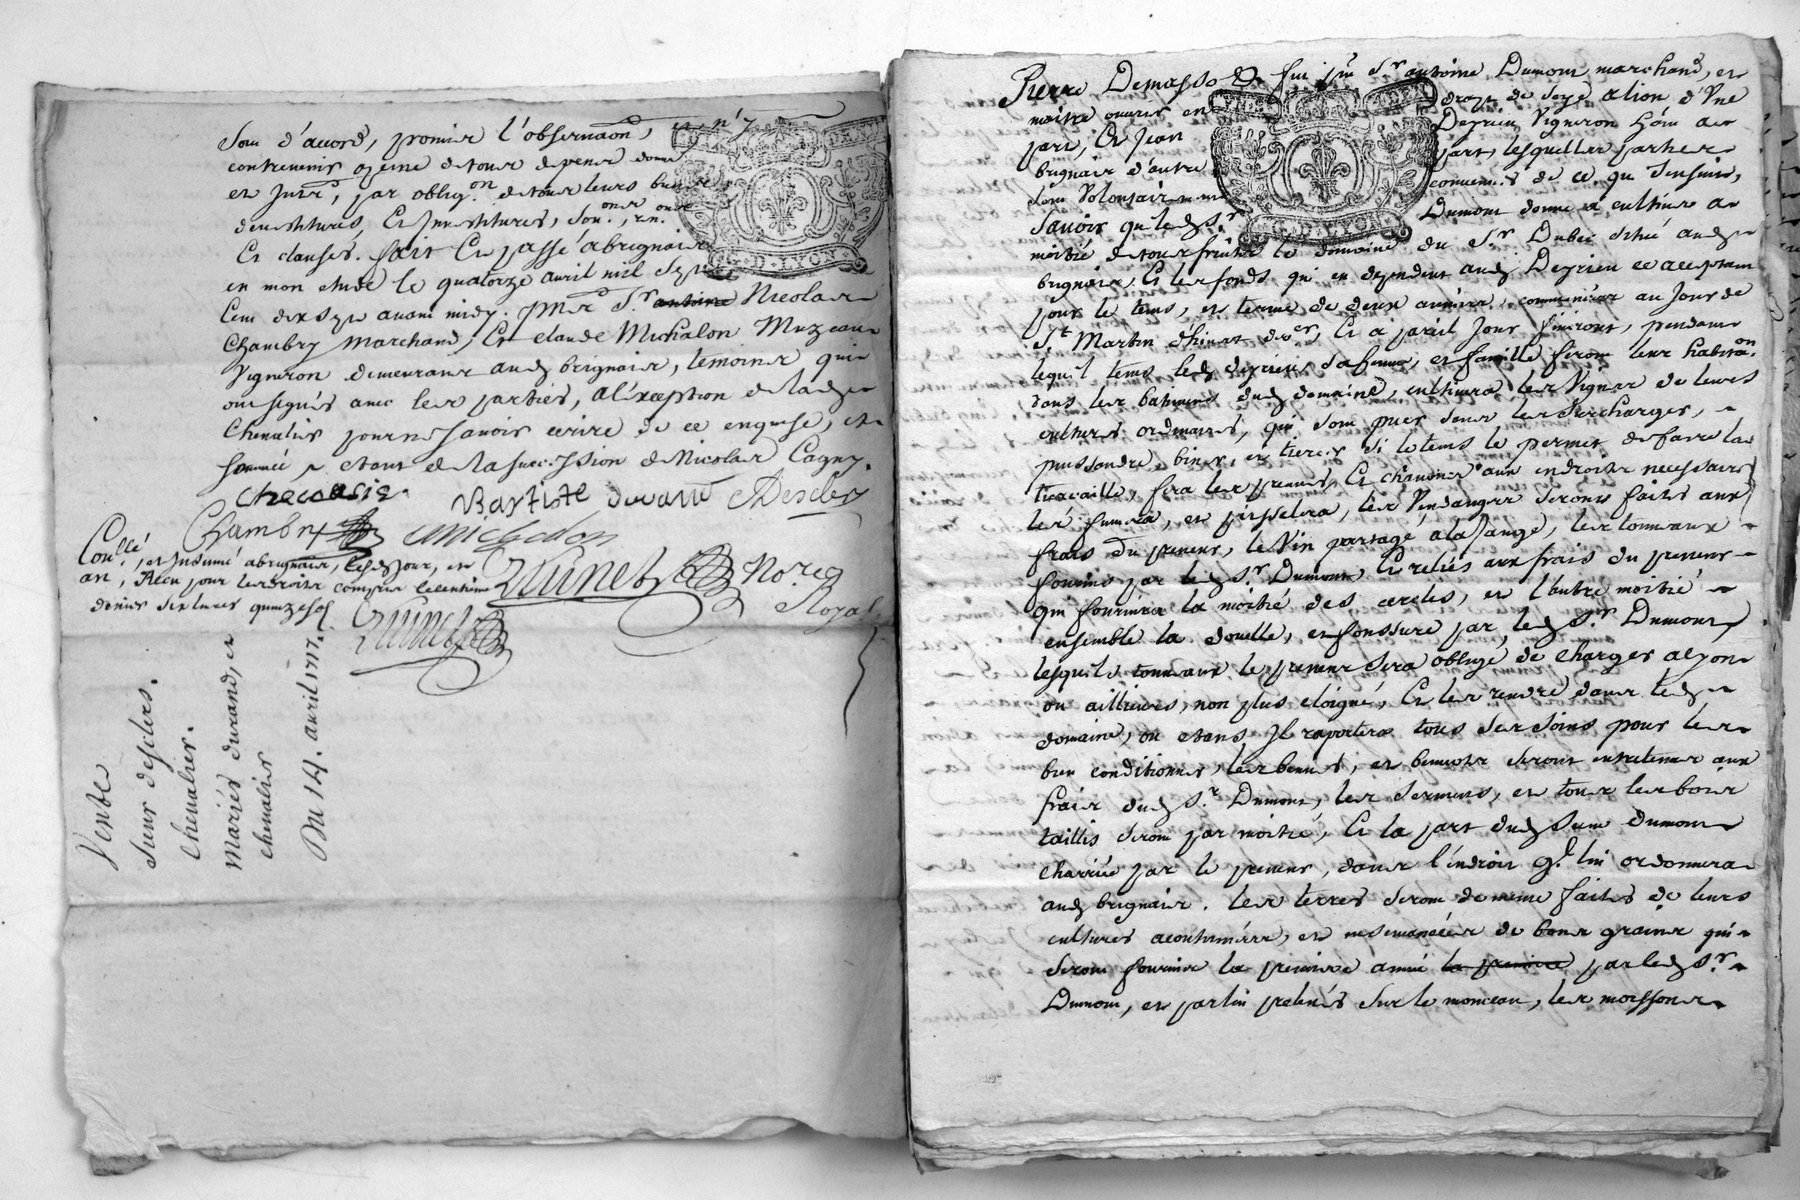 sont d'accord, promis l'observaon, et n'y
contrevenir a peine de tous depens dom.
et jnter, par oblig.on de tous leurs biens
devestitures, Et jnvestitures, Sou.ons, ren.ons
Et clauses. fait Et passé a brignais
en mon etude le quatorze avril mil sept
Cent dix sept avant midy. pnt Sr. antoine Nicolas
Chambry Marchand, Et claude Michalon Muzeau
Vigneron demeurans aud brignais, temoins qui
ont signés avec les parties, a l'exception de lad
Chevalier pour ne sçavoir écrire de ce enquise, et
sommée
etant de la succession de Nicolas Cagny.
chevalier. Baptiste durand Desilers
Chambry michalon
Con.llé, et jnsinué a brignais, lesd jour, et
an, Recu pour les droits compris le centieme
denier six livres quinze sol
Brunet No.re
Royal
Brunet
Vente
Sieur desilers.
Chevalier.
Mariés durand, et
chevalier
Du 14. avril 1717.
Pierre Demasso &. fut pnt Sr. antoine Dumont marchand, et
maitre ouvrier en draps de soye a lion d'Une
part, Et Jean Deyrieu Vigneron hâm de
brignais d'autre part, lesquelles parties
sont Volontairem convenues de ce qui s'ensuit,
Savoir que led Sr. Dumont donne a culture a
moitié de tous fruits le domaine du Sr. Dubec situé aud
brignais, Et les fonds qui en dependent aud Deyrieu ce acceptant
pour le tems, et terme de deux années, commencées au Jour de
St. Martin d'hiver der.er, Et a pareil Jour finiront, pendant
lequel tems led deyrieu, sa femme, et famille feront leur habita.on
dans les batimens dud domaine, cultivera les Vignes de leurs
cultures ordinaires, qui sont puer
biner, et tiercer si le tems le permet de faire la
travaille, fera les preuves, Et chanées aux endroits necessaires
les fumera, et pesselera, les Vendanges seront faites aux
frais du preneur, le Vin partagé à la Jauge, les tonneaux
fournis par led Sr. Dumont, Et reliés aux frais du preneur
qui fournira la moitié des cercles, et l'autre moitié
ensemble la douelle, et fonssure par led Sr. Dumont
lesquels tonneaux le preneur sera obligé de charger a lyon
ou ailleurs, non plus eloigné, Et les rendre dans led
domaine, ou etans Jl raportera tous ses soins pour les
bien conditionner, les bennes, et bennots seront entretenus aux
frais dud Sr. Dumont, les sermens, et tous les bois
taillis seront par moitié, Et la part dud Sieur dumont
charriée par le preneur, dans l'endroit ql. lui ordonnera
aud brignais. les terres seront de meme faites de leurs
cultures acoutumées, et ensemencées de bons grains qui
seront fournis la premiere année la premiere par led Sr.
Dumont, et par lui prelevés sur le monceau, les moissons